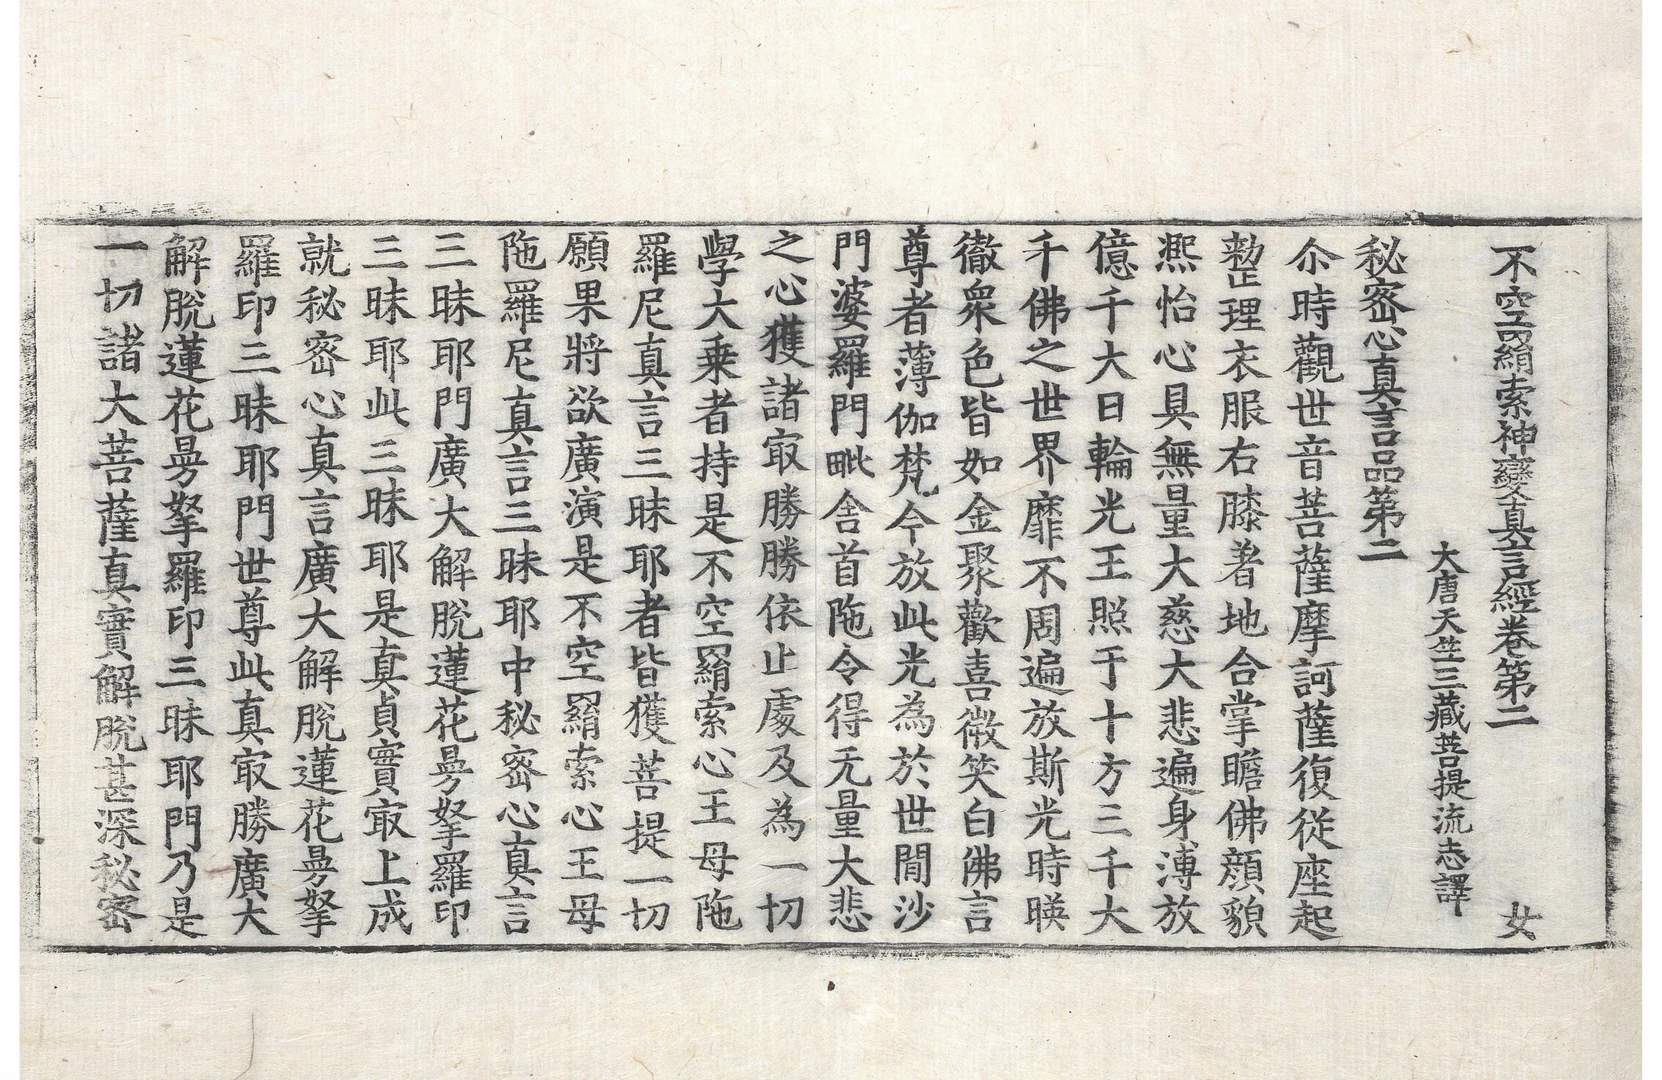 不空羂索神變真言經卷第二　女
大唐天竺三藏菩提流志譯
秘密心真言品第二
尒時觀世音菩薩摩訶薩復從座起
整理衣服右膝著地合掌瞻佛顔貌
熈怡心具無量大慈大悲遍身溥放
億千大日輪光王照于十方三千大
千佛之世界靡不周遍放斯光時暎
徹衆色皆如金聚歡喜微笑白佛言
尊者薄伽梵今放此光為於世間沙
門婆羅門毗舍首陁令得无量大悲
之心獲諸㝡勝勝依止處及為一切
學大乗者持是不空羂索心王母陁
羅尼真言三昧耶者皆獲菩提一切
願果將欲廣演是不空羂索心王母
陁羅尼真言三昧耶中秘密心真言
三昧耶門廣大解脫蓮花曼拏羅印
三昧耶此三昧耶是真貞實㝡上成
就秘密心真言廣大解脫蓮花曼拏
羅印三昧耶門世尊此真㝡勝廣大
解脫蓮花曼拏羅印三昧耶門乃是
一切諸大菩薩真實解脫甚深秘密